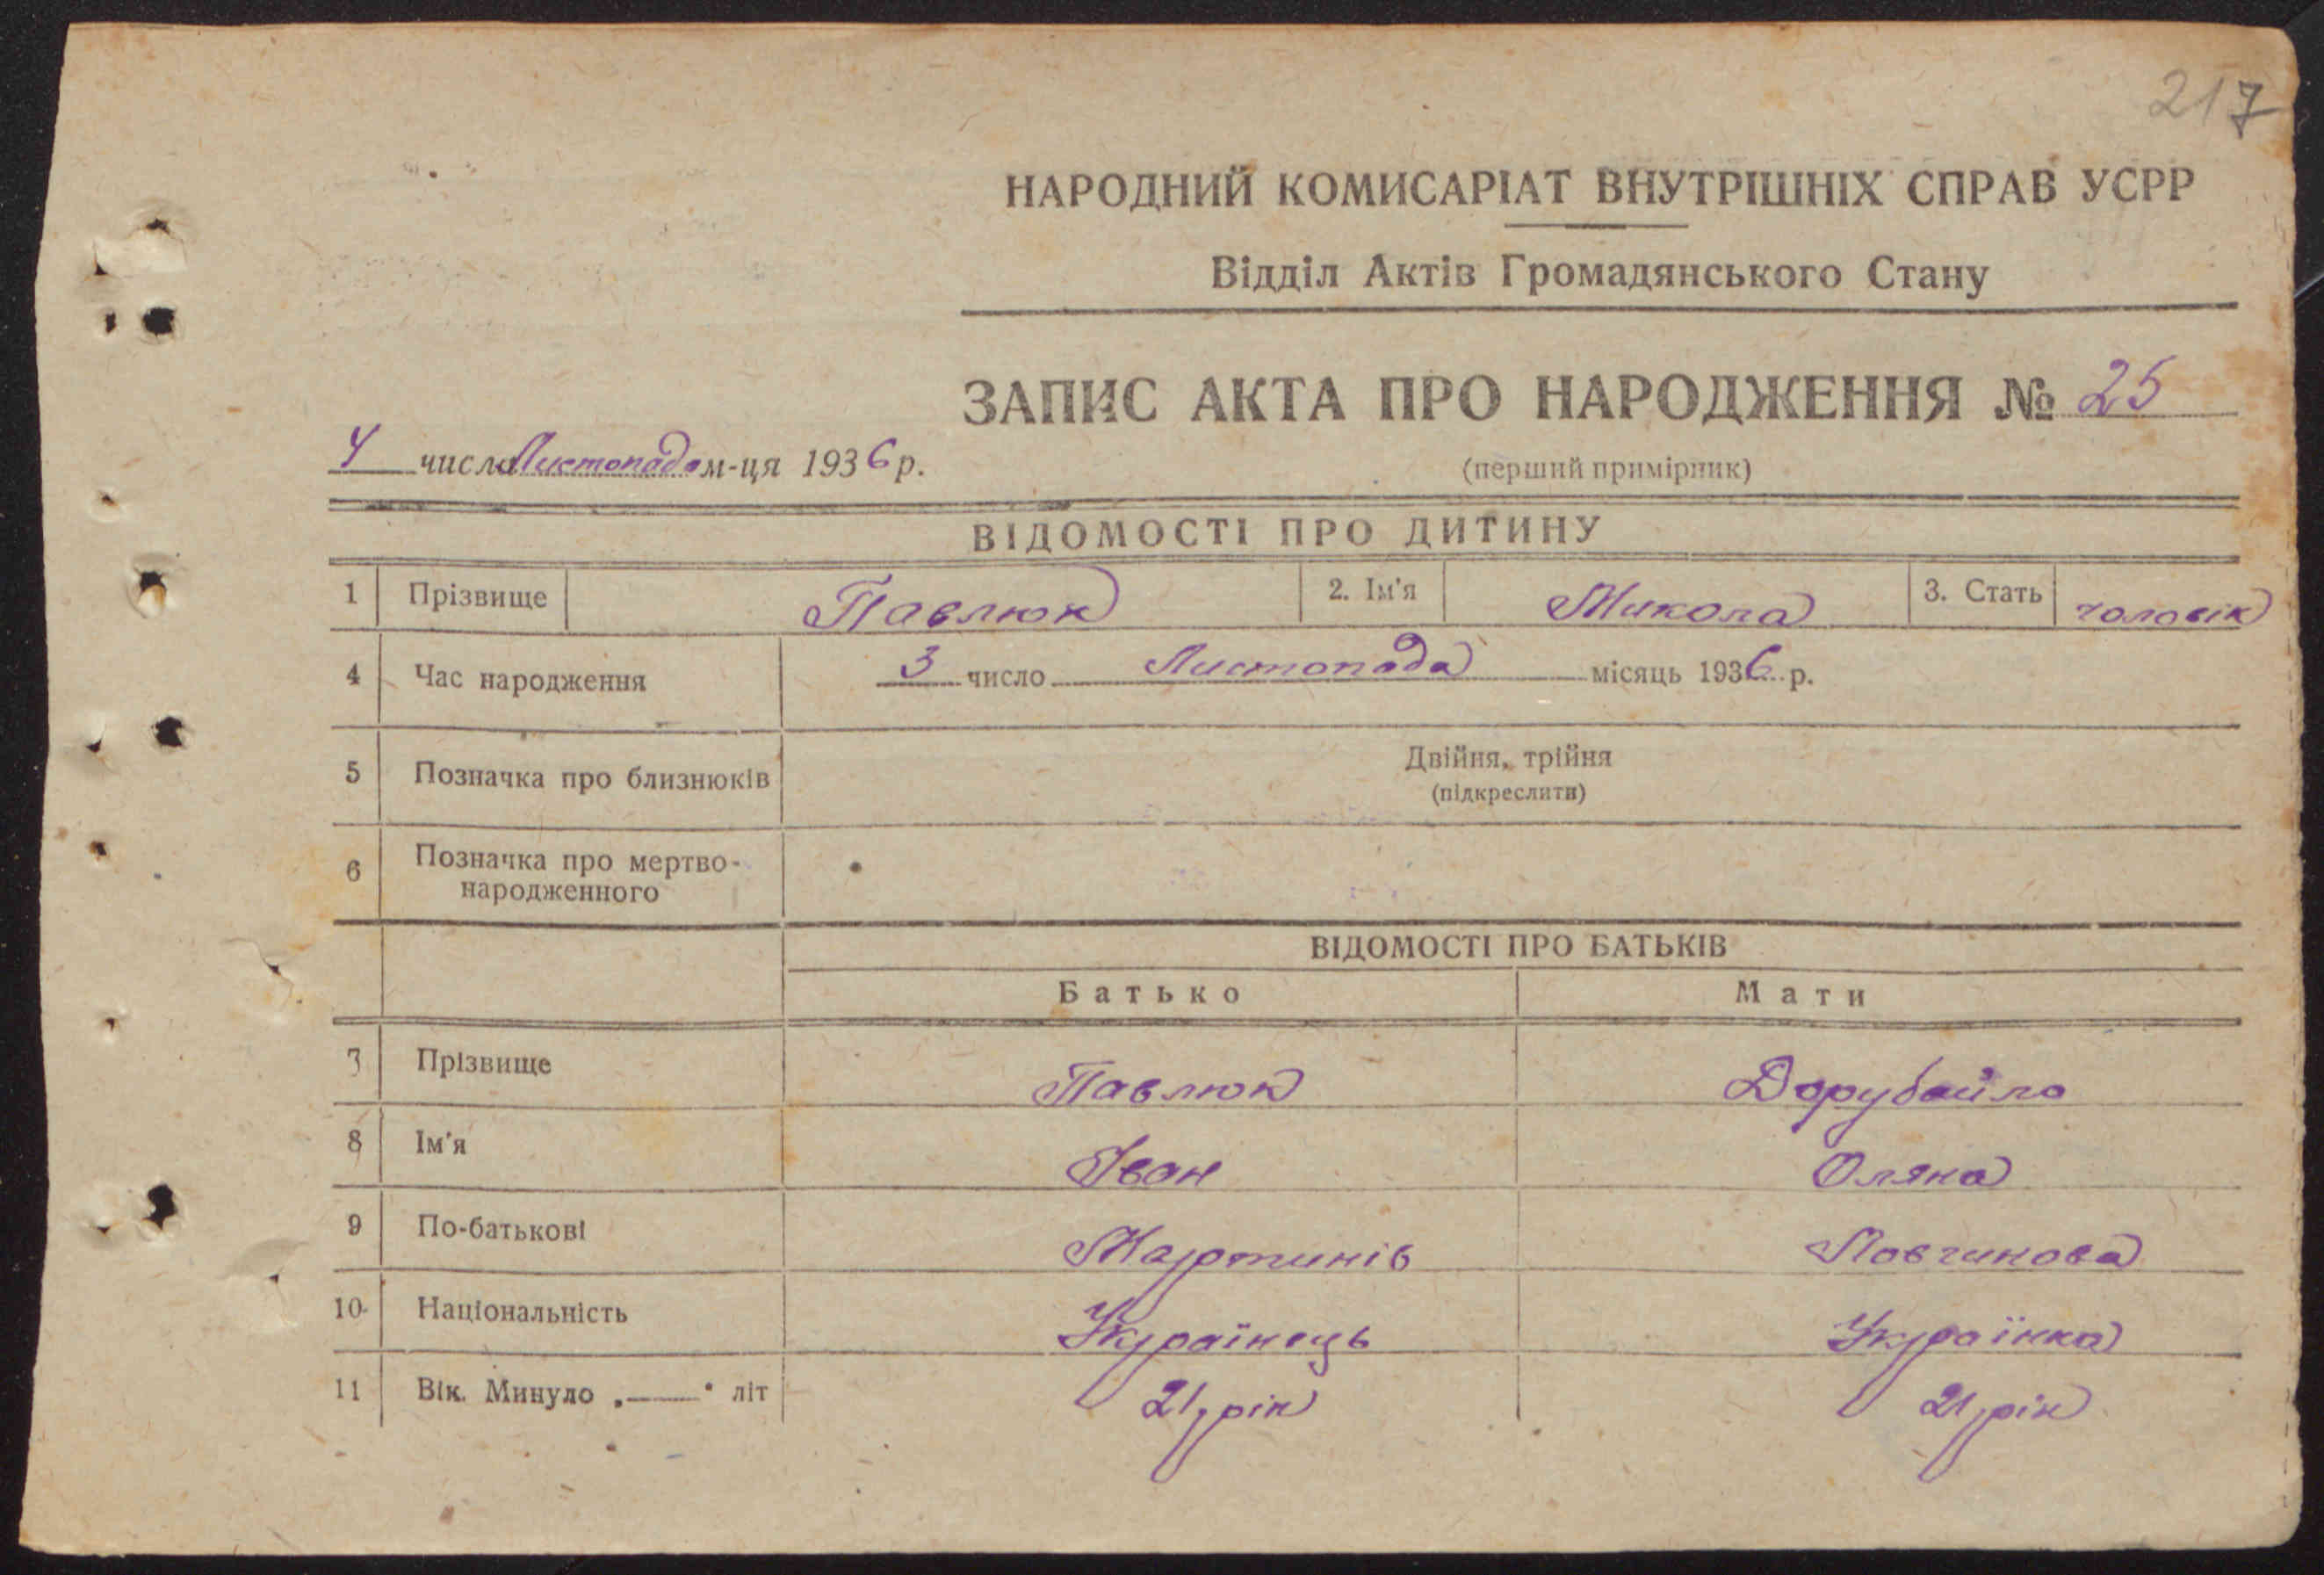 217
НАРОДНИЙ КОМИСАРІАТ ВНУТРІШНІХ СПРАВ УСРР
Відділ Актів Громадянського Стану
ЗАПИС АКТА ПРО НАРОДЖЕННЯ № 25
4 числа Листопада м-ця 1936 р.
(перший примірник)
ВІДОМОСТІ ПРО ДИТИНУ
1 Прізвище Павлюк 2. Ім'я Микола 3. Стать чоловік
4 Час народження 3 число Листопада місяць 1936 р.
5 Позначка про близнюків Двійня, трійня
(підкреслити)
6 Позначка про мертво-
народженного
ВІДОМОСТІ ПРО БАТЬКІВ
Батько Мати
7 Прізвище Павлюк Дорубайло
8 Ім'я Іван Оляна
9 По-батькові Мартинів
10 Національність Українець Українка
11 Вік. Минуло „——" літ 21 рік 21 рік